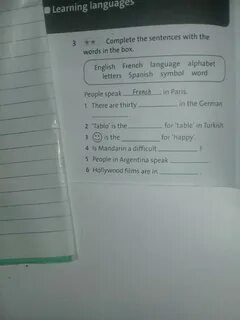 Learning languages
3 ★★ Complete the sentences with the
words in the box.
English French language alphabet
letters Spanish symbol word
People speak French in Paris.
1 There are thirty ______ in the German
______.
2 'Tablo' is the ______ for 'table' in Turkish
3 ☺ is the ______ for 'happy'.
4 Is Mandarin a difficult ______?
5 People in Argentina speak ______
6 Hollywood films are in ______.